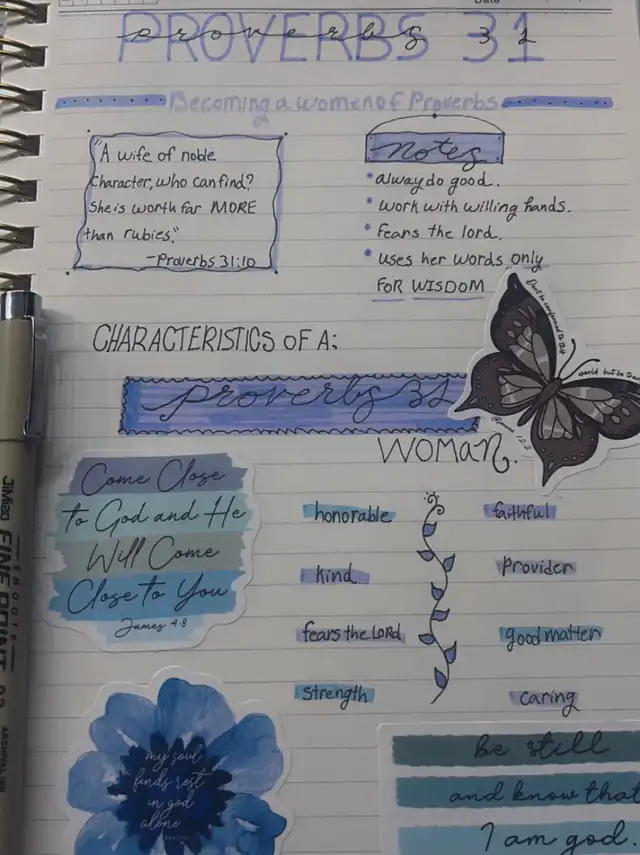 Date
PROVERBS 31
proverbs 31
Becoming a women of Proverbs
"A wife of noble
Character, who can find?
She is worth far MORE
than rubies."
-Proverbs 31:10
notes
alway do good.
work with willing hands.
Fears the lord.
uses her words only
FOR WISDOM
CHARACTERISTICS OF A:
proverbs 31
WOMAN.
Don't be conformed to this
world but be
Romans 12:2
Come Close
to God and He
Will Come
Close to You
James 4:8
honorable
kind
fears the LORD
strength
faithful
Provider
good matter
caring
my soul
finds rest
in god
alone
be still
and know that
I am god.
SMOOTH
FINE POINT
ARCHIVAL